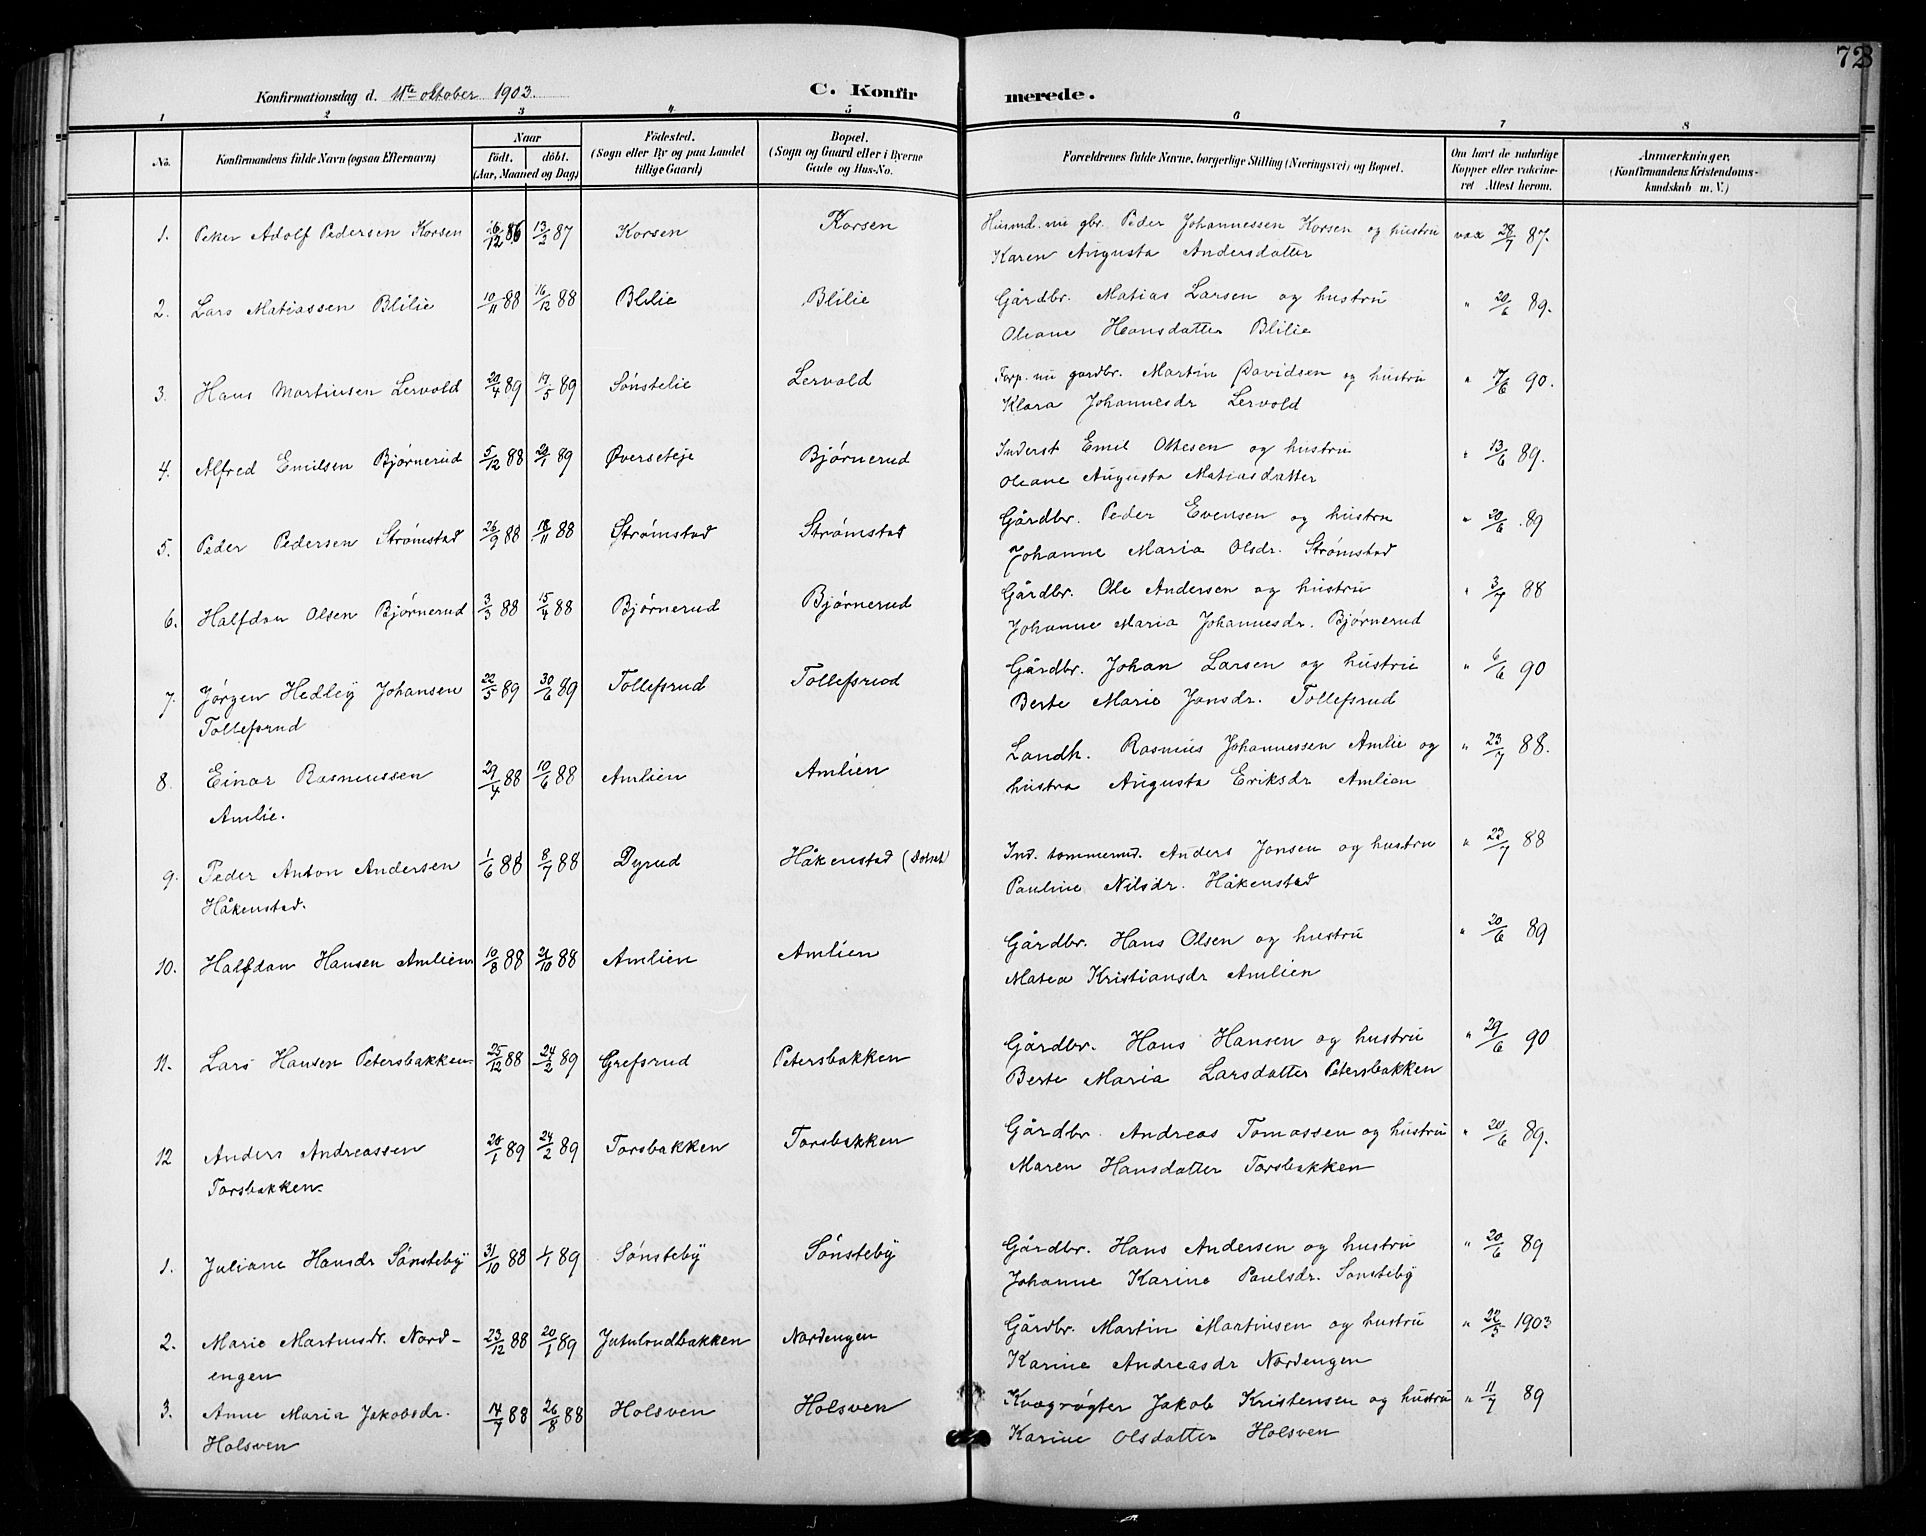 73
Konfirmationsdag d. 11te oktober 1903.
C. Konfirmerede.
1 2 3 4 5 6 7 8
No.
Konfirmandens fulde Navn (ogsaa Efternavn)
Naar
født. døbt.
(Aar, Maaned og Dag)
Fødested.
(Sogn eller By og paa Landet
tillige Gaard)
Bopæl.
(Sogn og Gaard eller i Byerne
Gade og Hus-No.
Forældrenes fulde Navne, borgerlige Stilling (Næringsvei) og Bopæl.
Om havt de naturlige
Kopper eller vakcine-
ret Attest herom.
Anmærkninger.
(Konfirmandens Kristendoms-
kundskab m. V.)
1. Peter Adolf Pedersen Korsen 16/12 86 13/2 87 Korsen Korsen Husmd. nu gbr. Peder Johannessen Korsen og hustru vax 28/7 87.
Karen Augusta Andersdatter
2. Lars Matiassen Blilie 10/11 88 16/12 88 Blilie Blilie Gårdbr. Matias Larsen og hustru " 20/6 89.
Oleane Hansdatter Blilie
3. Hans Martinsen Lervold 20/4 89 19/5 89 Sønstelie Lervold Forp. nu gardbr. Martin Davidsen og hustru " 17/6 90.
Klara Johannesdr Lervold
4. Alfred Emilsen Bjørnerud 5/12 88 20/1 89 Øverseteje Bjørnerud Inderst Emil Ottesen og hustru " 13/6 89.
Oleane Augusta Matiasdatter
5. Peder Pedersen Strømstad 26/9 88 18/11 88 Strømstad Strømstad Gårdbr. Peder Evensen og hustru " 20/6 89
Johanne Maria Olsdr. Strømstad
6. Halfdan Olsen Bjørnerud 3/3 88 15/4 88 Bjørnerud Bjørnerud Gårdbr. Ole Andersen og hustru " 3/7 88
Johanne Maria Johannesdr. Bjørnerud
7. Jørgen Hedley Johansen 22/5 89 30/6 89 Tollefsrud Tollefsrud Gårdbr. Johan Larsen og hustru " 6/6 90
Tollefsrud Berte Marie Jonsdr. Tollefsrud
8. Einar Rasmussen 29/4 88 10/6 88 Amlien Amlien Landh. Rasmus Johannessen Amlie og " 23/7 88.
Amlie. hustru Augusta Eriksdr Amlien
9. Peder Anton Andersen 1/6 88 8/7 88 Dyrud Håkenstad Ind. tømmermd. Anders Jonsen og hustru " 23/7 88
Håkenstad. Pauline Nilsdr. Håkenstad
10. Halfdan Hansen Amlien 10/8 88 21/10 88 Amlien Amlien Gårdbr. Hans Olsen og hustru " 20/6 89
Matea Kristiansdr Amlien
11. Lars Hansen Petersbakken 25/12 88 24/2 89 Grefsrud Petersbakken Gårdbr. Hans Hansen og hustru " 29/6 90
Berte Maria Larsdatter Petersbakken
12 Anders Andreassen 20/1 89 24/2 89 Torsbakken Torsbakken Gårdbr. Andreas Tomassen og hustru " 20/6 89.
Torsbakken. Maren Hansdatter Torsbakken
1. Juliane Hansdr Sønsteby 31/10 88 1/1 89 Sønsteby Sønsteby Gårdbr. Hans Andersen og hustru " 20/6 89
Johanne Karine Paulsdr. Sønsteby
2. Marie Martinsdr. Nord- 23/12 88 20/1 89 Jutulrudbakken Nordengen Gårdbr. Martin Martinsen og hustru " 22/5 1903
engen Karine Andreasdr Nordengen
3. Anne Maria Jakobsdr. 14/7 88 26/8 88 Holsven Holsven Kvægrøgter Jakob Kristensen og hustru " 11/7 89
Holsven Karine Olsdatter Holsven